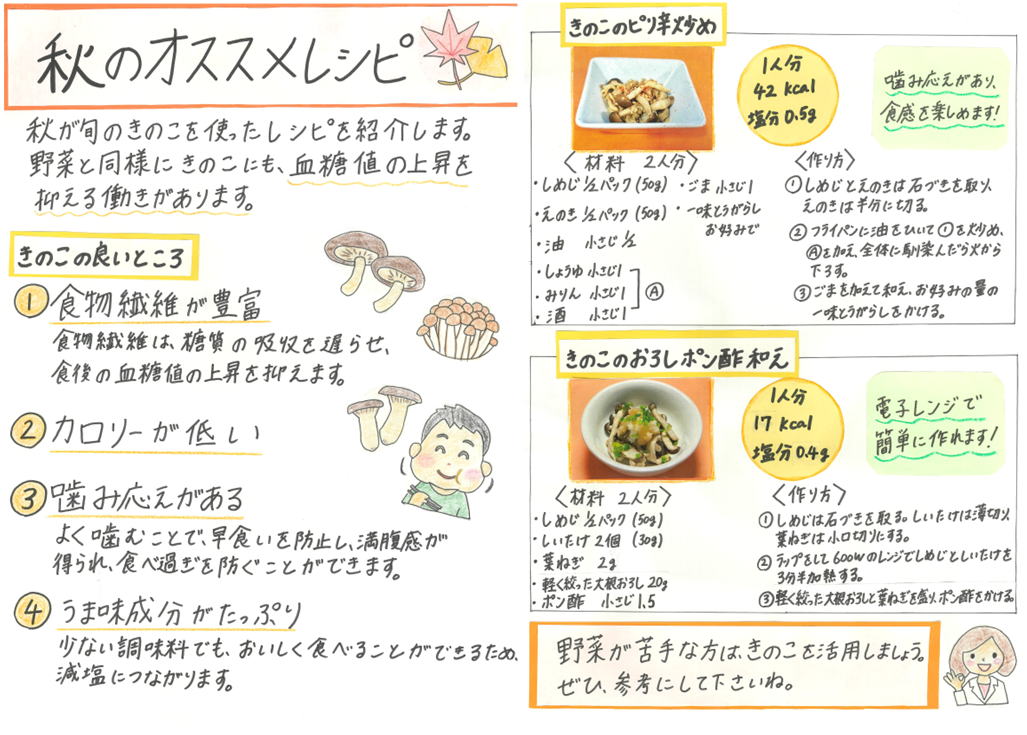 秋のオススメレシピ
秋が旬のきのこを使ったレシピを紹介します。
野菜と同様にきのこにも、血糖値の上昇を
抑える働きがあります。
きのこの良いところ
① 食物繊維が豊富
食物繊維は、糖質の吸収を遅らせ、
食後の血糖値の上昇を抑えます。
② カロリーが低い
③ 噛み応えがある
よく噛むことで、早食いを防止し、満腹感が
得られ、食べ過ぎを防ぐことができます。
④ うま味成分がたっぷり
少ない調味料でも、おいしく食べることができるため、
減塩につながります。
きのこのピリ辛炒め
1人分
42 kcal
塩分0.5g
噛み応えがあり、
食感を楽しめます!
〈材料 2人分〉
・しめじ ½パック(50g)
・えのき ½パック(50g)
・油 小さじ½
・しょうゆ 小さじ1
・みりん 小さじ1
・酒 小さじ1
Ⓐ
・ごま 小さじ1
・一味とうがらし
お好みで
〈作り方〉
①しめじとえのきは石づきを取り、
えのきは半分に切る。
②フライパンに油をひいて①を炒め、
Ⓐを加え、全体に馴染んだら火から
下ろす。
③ごまを加えて和え、お好みの量の
一味とうがらしをかける。
きのこのおろしポン酢和え
1人分
17 kcal
塩分0.4g
電子レンジで
簡単に作れます!
〈材料 2人分〉
・しめじ ½パック(50g)
・しいたけ 2個 (30g)
・葉ねぎ 2g
・軽く絞った大根おろし 20g
・ポン酢 小さじ1.5
〈作り方〉
①しめじは石づきを取る。しいたけは薄切り、
葉ねぎは小口切りにする。
②ラップをして600Wのレンジでしめじとしいたけを
3分半加熱する。
③軽く絞った大根おろしと葉ねぎを盛り、ポン酢をかける。
野菜が苦手な方は、きのこを活用しましょう。
ぜひ、参考にして下さいね。